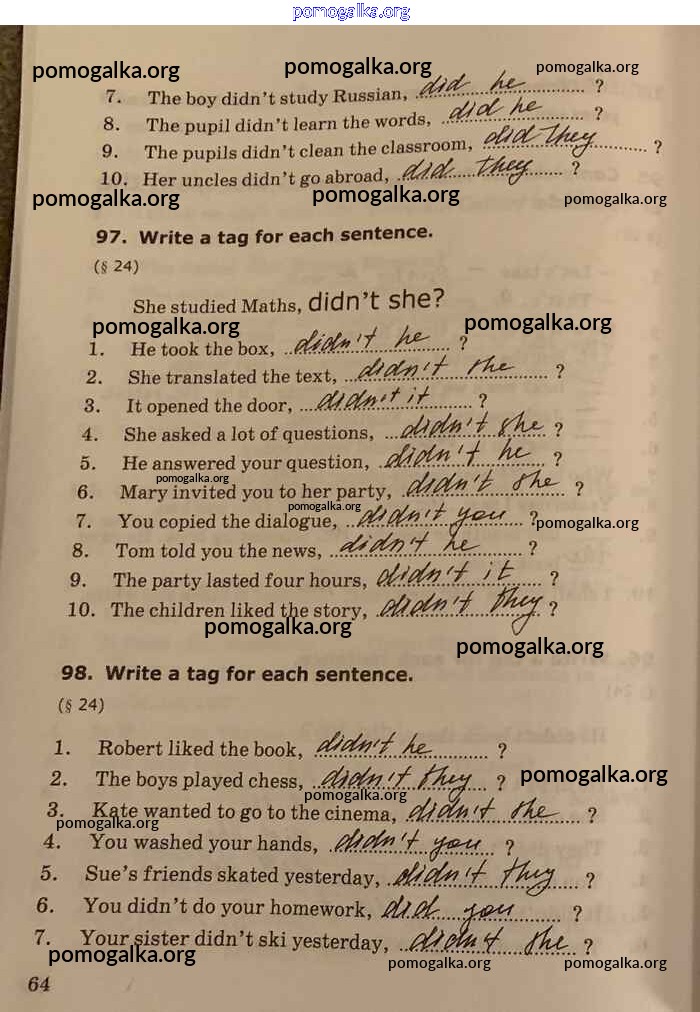 pomogalka.org
pomogalka.org pomogalka.org pomogalka.org
7. The boy didn't study Russian, did he ?
8. The pupil didn't learn the words, did he ?
9. The pupils didn't clean the classroom, did they ?
10. Her uncles didn't go abroad, did they ?
pomogalka.org pomogalka.org pomogalka.org
97. Write a tag for each sentence.
(§ 24)
She studied Maths, didn't she?
pomogalka.org pomogalka.org
1. He took the box, didn't he ?
2. She translated the text, didn't she ?
3. It opened the door, didn't it ?
4. She asked a lot of questions, didn't she ?
5. He answered your question, didn't he ?
pomogalka.org
6. Mary invited you to her party, didn't she ?
pomogalka.org
7. You copied the dialogue, didn't you ?
pomogalka.org
8. Tom told you the news, didn't he ?
9. The party lasted four hours, didn't it ?
10. The children liked the story, didn't they ?
pomogalka.org
pomogalka.org
98. Write a tag for each sentence.
(§ 24)
1. Robert liked the book, didn't he ?
2. The boys played chess, didn't they ?
pomogalka.org
pomogalka.org
3. Kate wanted to go to the cinema, didn't she ?
pomogalka.org
4. You washed your hands, didn't you ?
5. Sue's friends skated yesterday, didn't they ?
6. You didn't do your homework, did you ?
7. Your sister didn't ski yesterday, didn't she ?
pomogalka.org pomogalka.org pomogalka.org
64